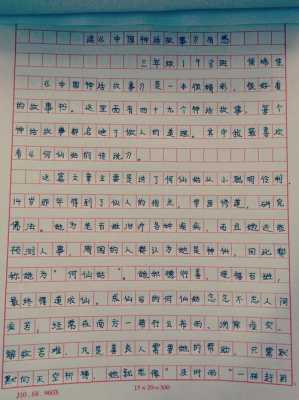 读《中国神话故事》有感
三年级1
《中国神话故事》是一本很精彩，很好看
的故事书。这里面有四十九个神话故事，每个
神话故事都启迪了做人的道理。其中我最喜欢
看《何仙姑的传说》。
这篇文章主要是讲了何仙姑从小聪明伶俐，
14岁那年得到了仙人的指点，学医修道，研究
佛法。她为老百姓治疗各种疾病，而且她还能
预测人事，周围的人都认为她是神仙，因此都
称她为“何仙姑”。她积德行善，受得百姓，
最终得道成仙。成仙后的何仙姑念念不忘人间
疾苦，经常在南方一带行云布雨、消除疫灾、
解救苦难，凡是善良人需要她的帮助，只需默
默的天空祈祷，她就像“及时雨”一样赶到
15×20=300